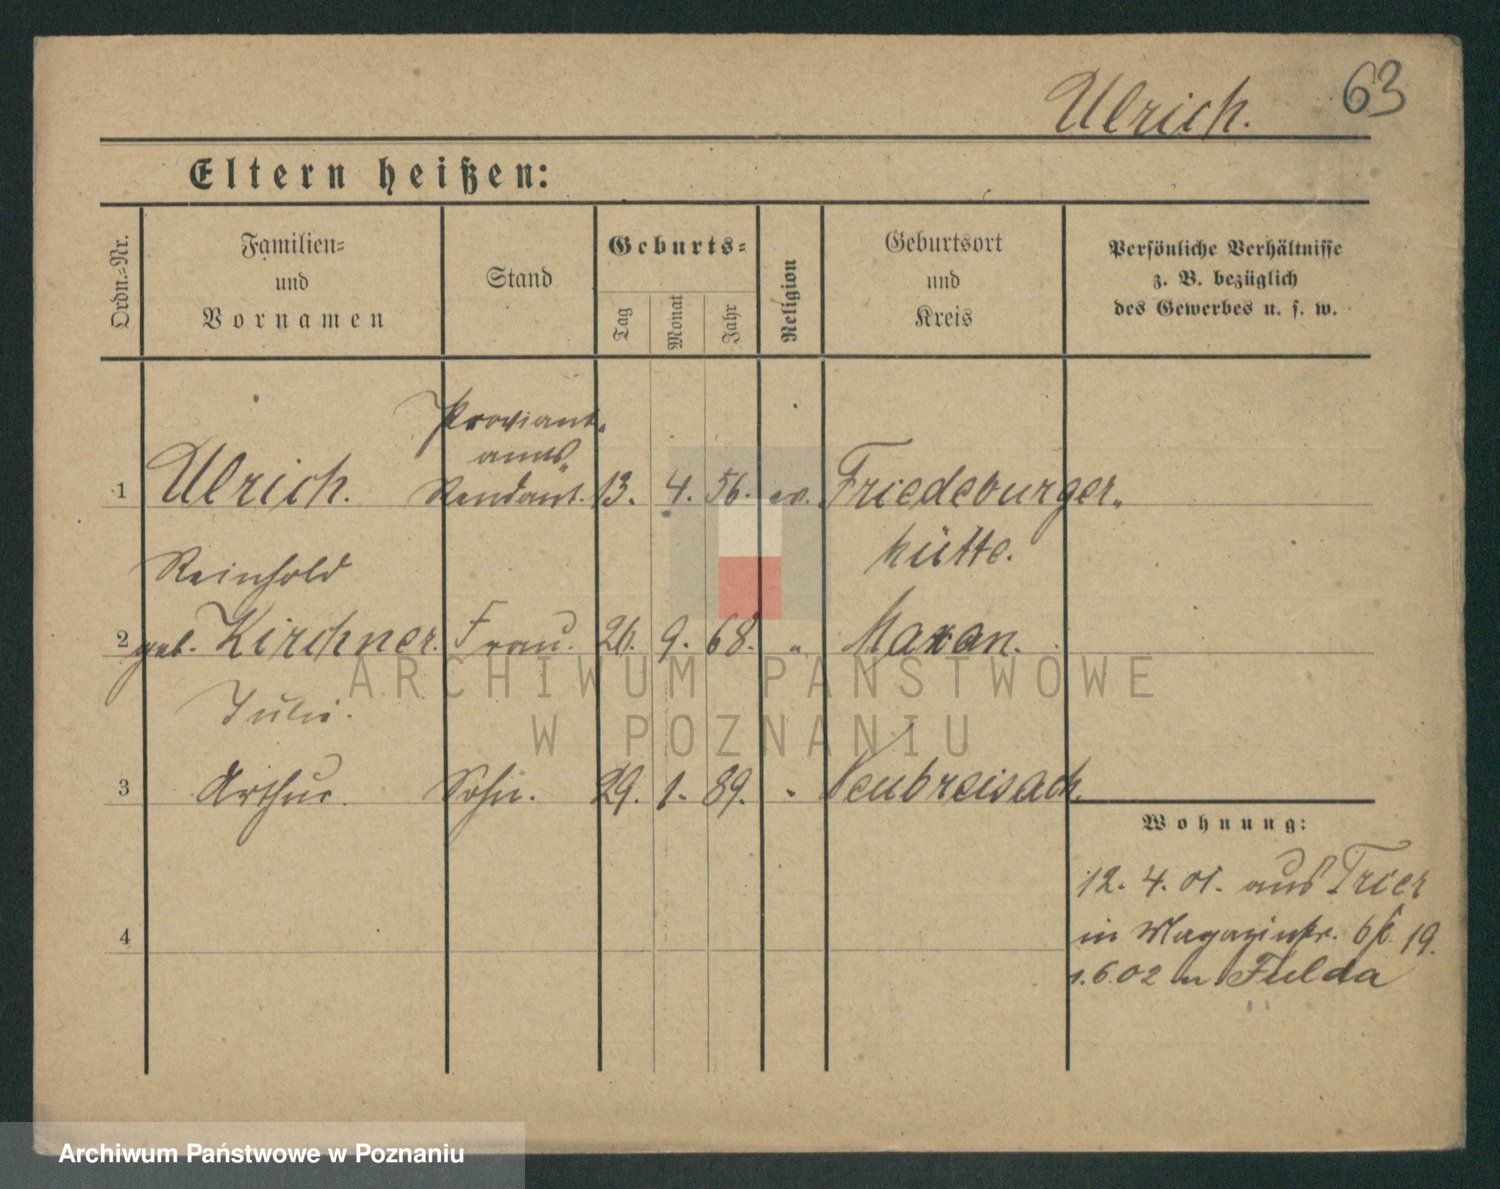 Ulrich. 63
Eltern heißen:
Ordn.-Nr.
Familien-
und
Vornamen
Stand
Geburts-
Tag
Monat
Jahr
Religion
Geburtsort
und
Kreis
Persönliche Verhältnisse
z. B. bezüglich
des Gewerbes u. s. w.
Proviant-
amts-
1 Ulrich. Rendant. 13. 4. 56. ev. Friedeburger-
hütte.
Reinhold
2 geb. Kirchner. Frau. 26. 9. 68. " Maxan.
Julie.
3 Arthur. Sohn. 29. 1. 89. " Neubreisach.
Wohnung:
12. 4. 01. aus Trier
in Magazinstr. 19.
4
1.6.02 n Fulda
ARCHIWUM PAŃSTWOWE
W POZNANIU
Archiwum Państwowe w Poznaniu